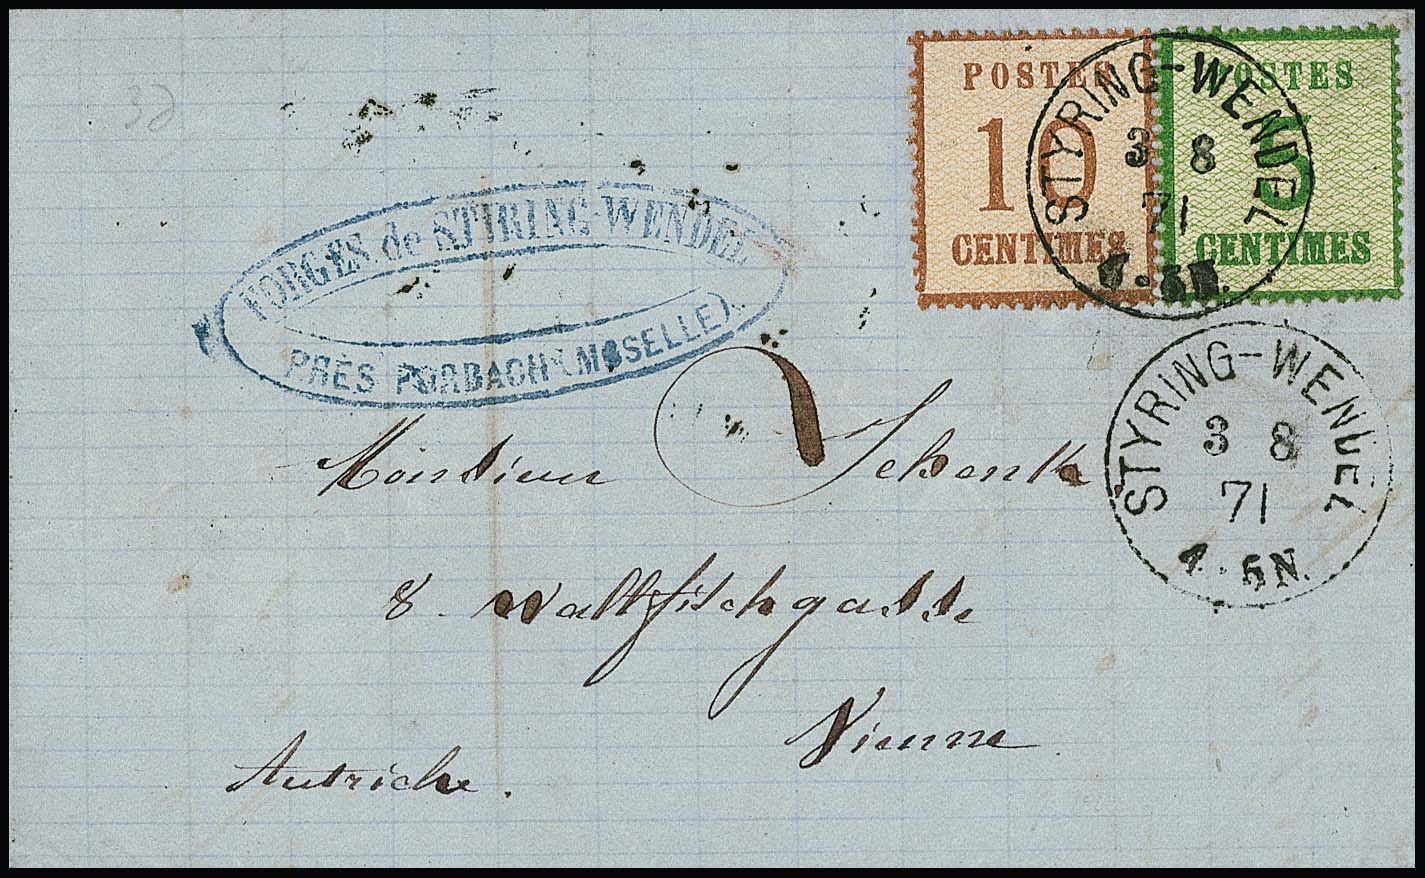 30
POSTES
10
CENTIMES
POSTES
5
CENTIMES
STYRING-WENDEL
3 8
71
FORGES de STIRING-WENDEL
PRÈS FORBACH (MOSELLE)
STYRING-WENDEL
3 8
71
4-5N.
Monsieur Schenk
8 Wallfischgasse
Vienne
Autriche.